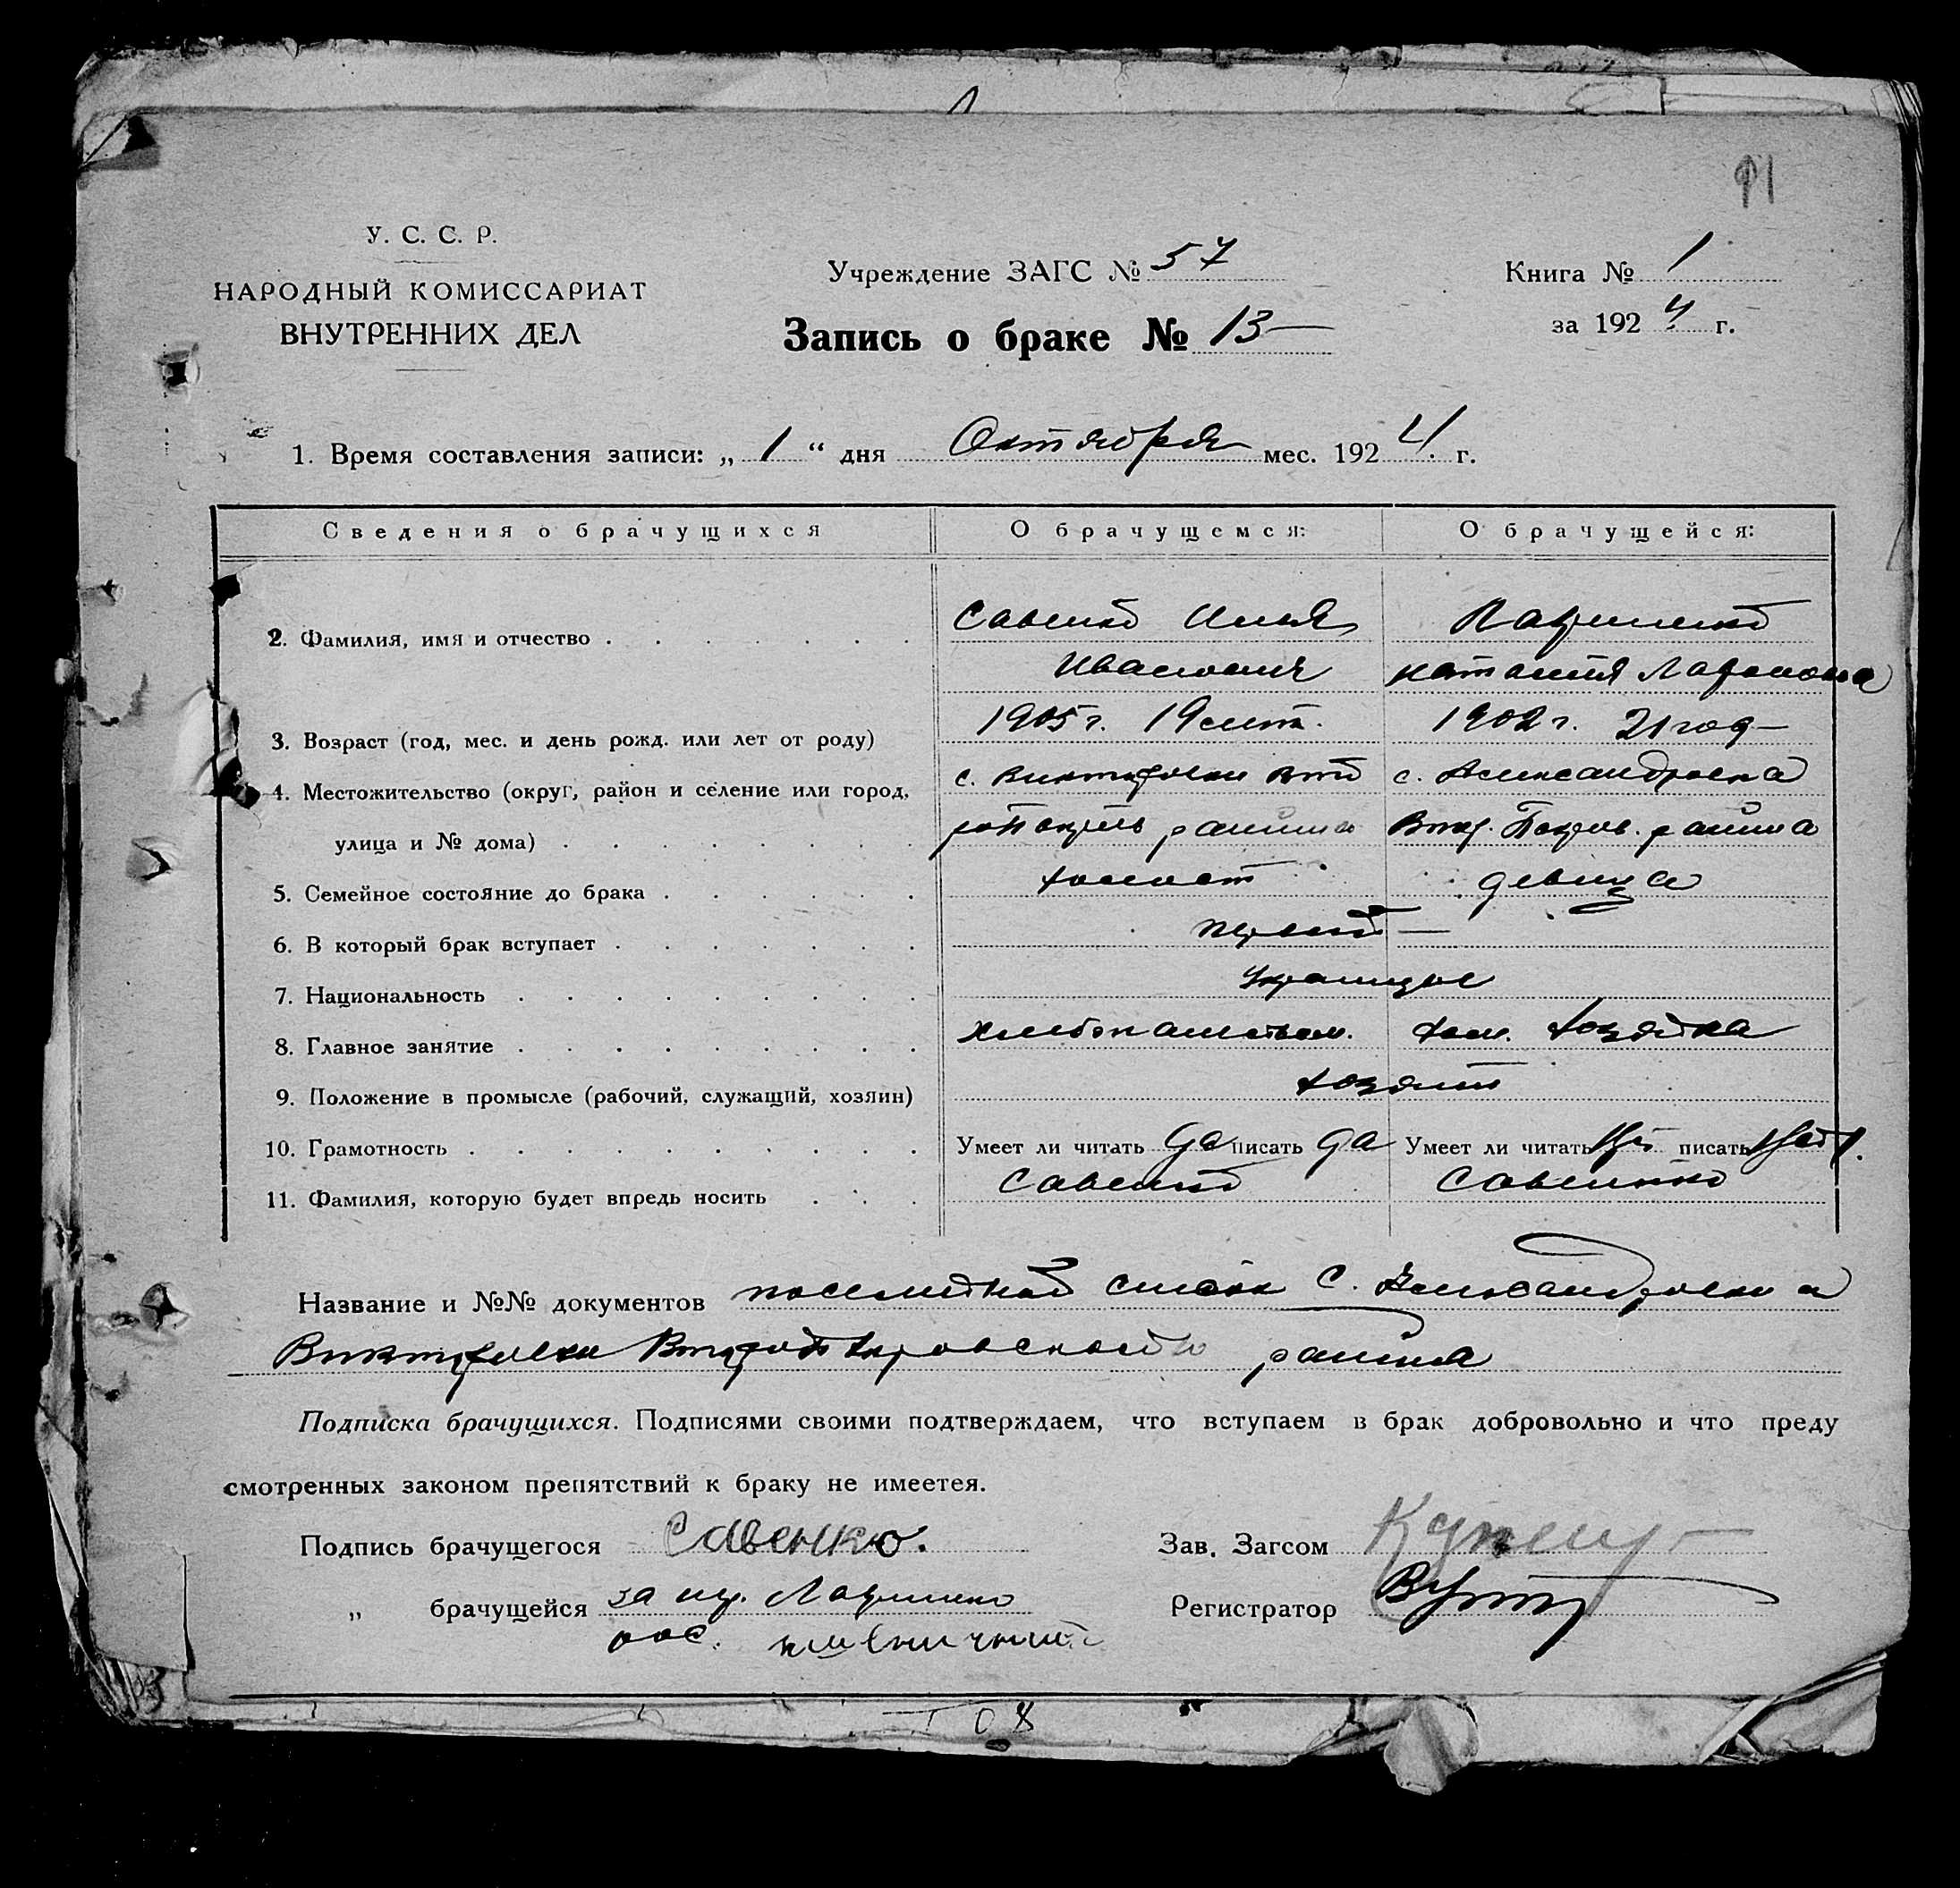 У. С. С. Р.
НАРОДНЫЙ КОМИССАРИАТ
ВНУТРЕННИХ ДЕЛ
Учреждение ЗАГС № 57
Книга № 1
Запись о браке № 13—
за 1924 г.
1. Время составления записи: „ 1 “ дня Октября мес. 1924. г.
Сведения о брачущихся О брачущемся: О брачущейся:
2. Фамилия, имя и отчество Савенко Илья
Иванович Наталия
3. Возраст (год, мес. и день рожд. или лет от роду) 1905 г. 19 1902 г. 21 год—
4. Местожительство (округ, район и селение или город, с. с. Александровка
улица и № дома) района Покров. района
5. Семейное состояние до брака холост девица
6. В который брак вступает первый—
7. Национальность
8. Главное занятие хозяйка
9. Положение в промысле (рабочий, служащий, хозяин) хозяин
10. Грамотность Умеет ли читать да писать да Умеет ли читать писать
11. Фамилия, которую будет впредь носить Савенко Савенко
Название и №№ документов список с. Александровки и
района
Подписка брачущихся. Подписями своими подтверждаем, что вступаем в брак добровольно и что преду
смотренных законом препятствий к браку не имеетея.
Подпись брачущегося Савенко.
Зав. Загсом
„ брачущейся за
Регистратор